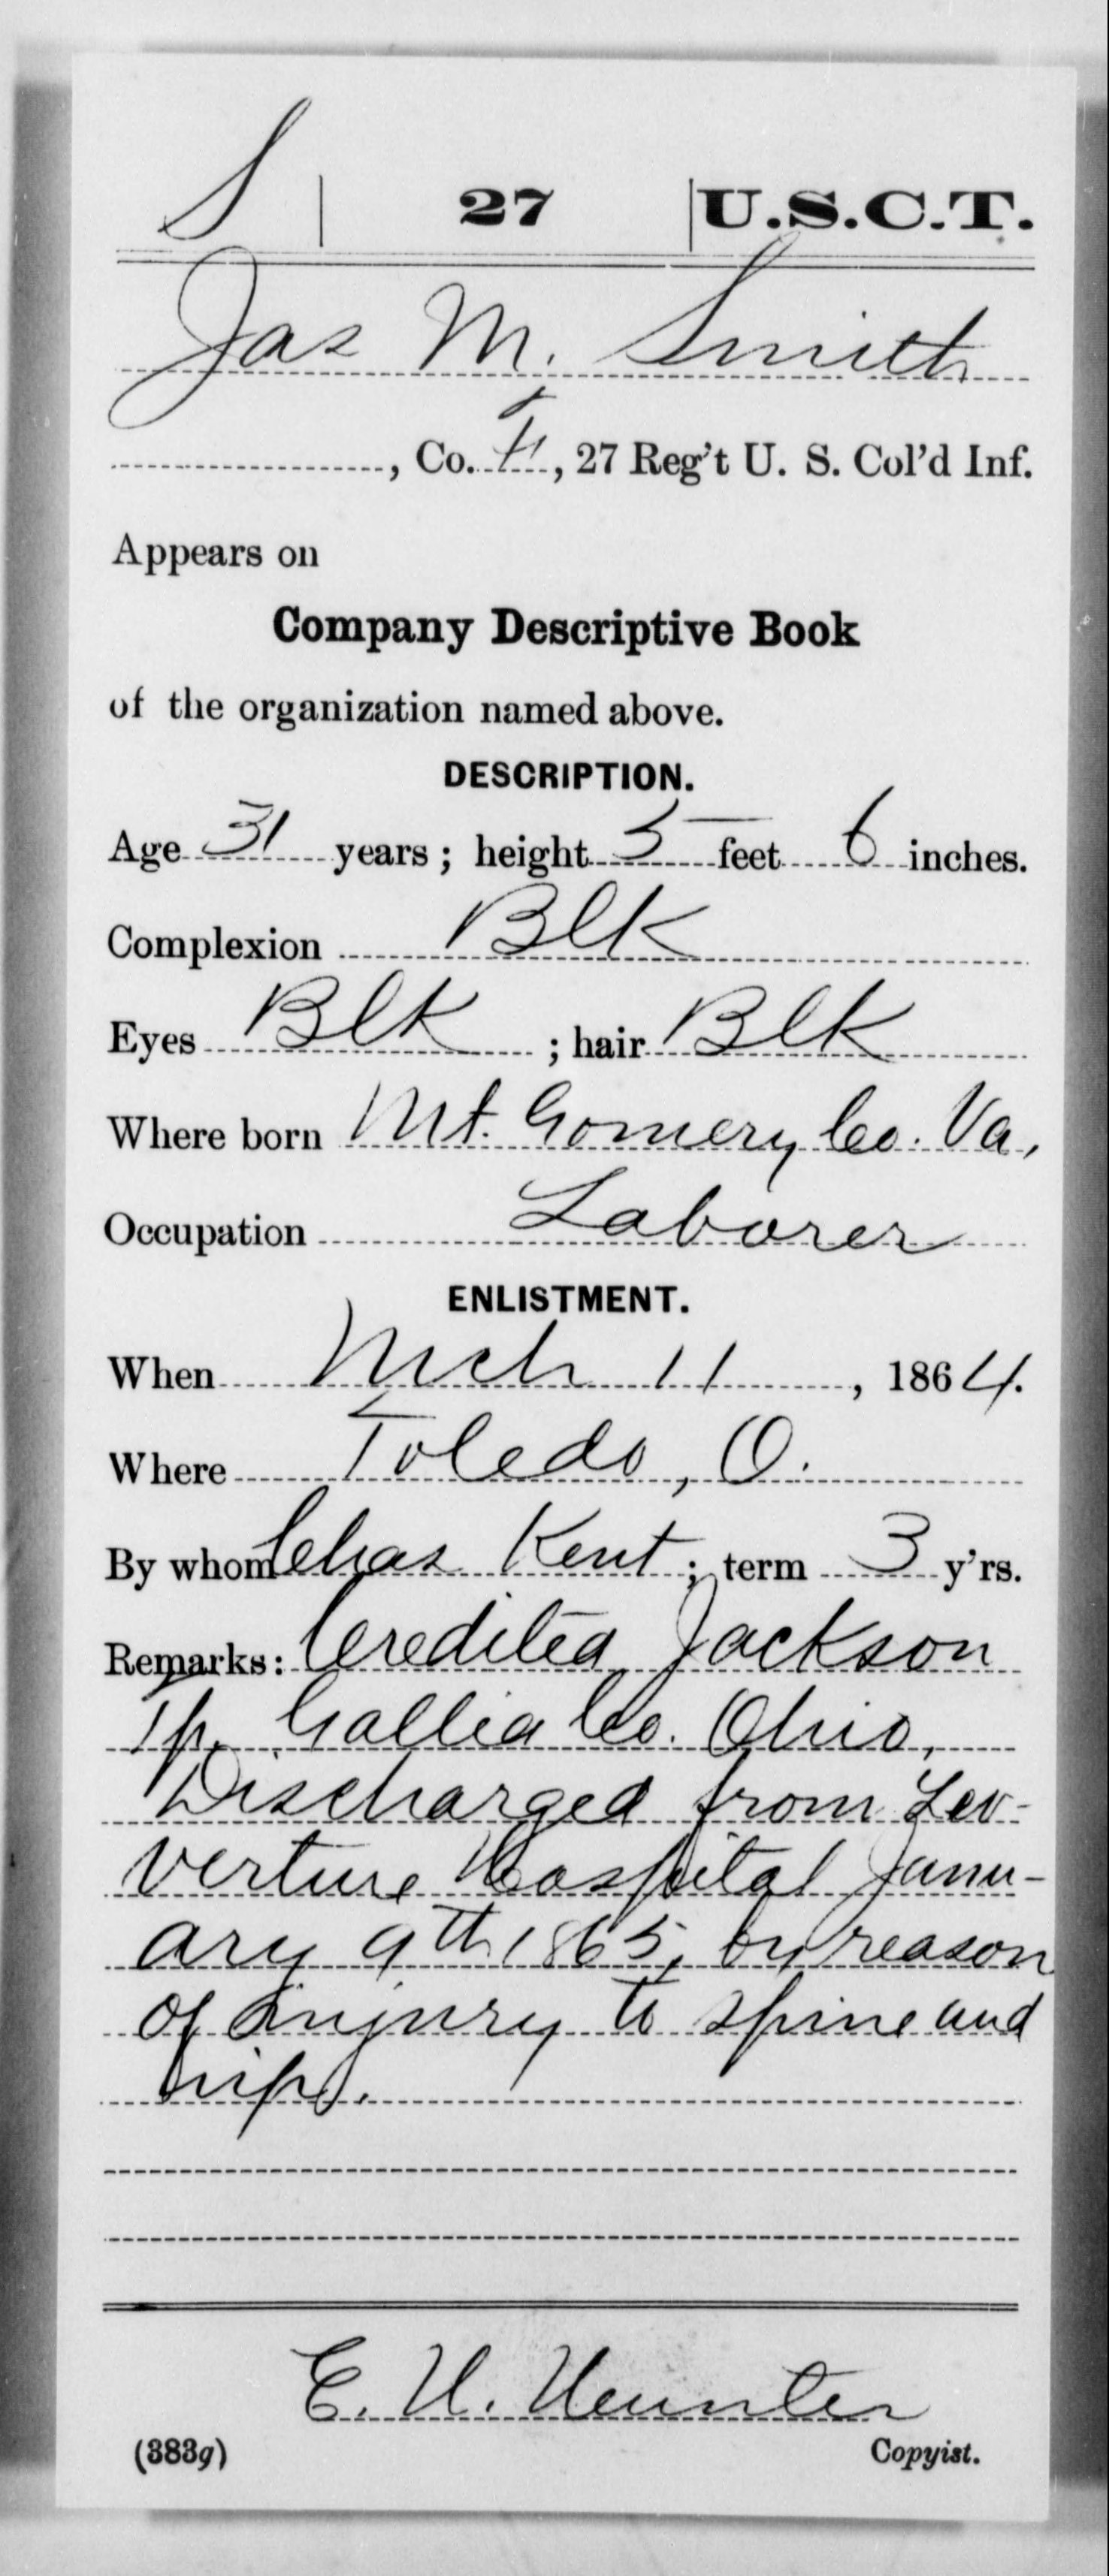 S | 27 | U.S.C.T.
Jas M. Smith
, Co. F, 27 Reg't U. S. Col'd Inf.
Appears on
Company Descriptive Book
of the organization named above.
DESCRIPTION.
Age 31 years; height 5 feet 6 inches.
Complexion Blk
Eyes Blk ; hair Blk
Where born Mt. Gomery Co. Va,
Occupation Laborer
ENLISTMENT.
When Mch 11, 1864.
Where Toledo, O.
By whom Chas Kent; term 3 y'rs.
Remarks: Credited Jackson
Tp. Gallia Co. Ohio,
Discharged from Lev-
verture Hospital Janu-
ary 9th 1865, by reason
of injury to spine and
hip.
E. U.
(383g) Copyist.